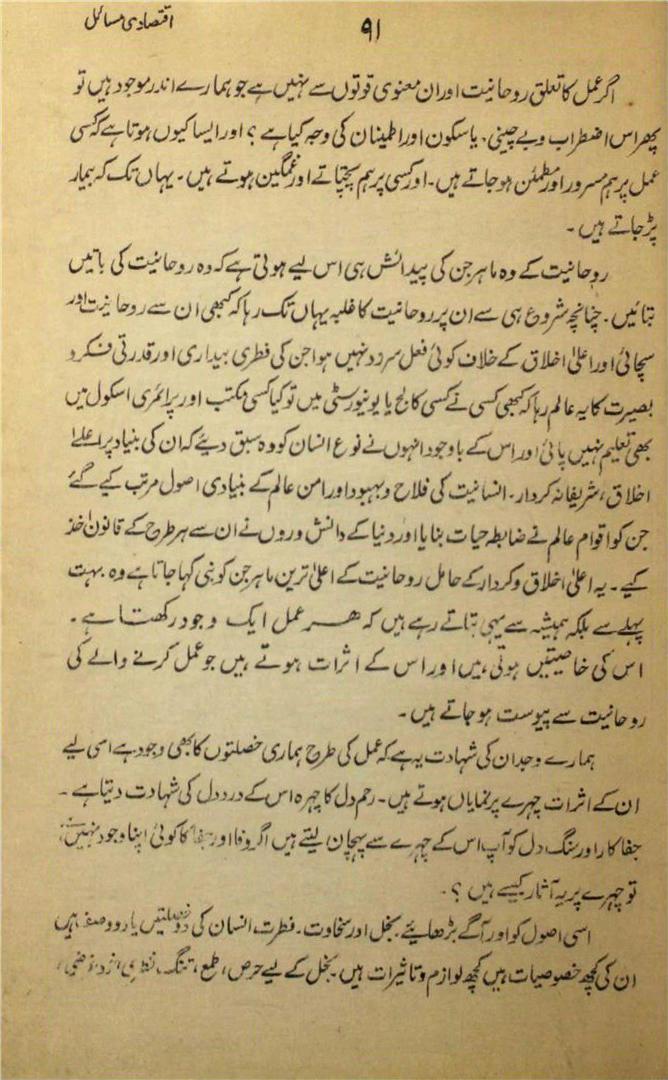 اقتصادی مسائل
۹۱
اگر عمل کا تعلق روحانیت اور ان معنوی قوتوں سے نہیں ہے جو ہمارے اندر موجود ہیں تو
پھر اس اضطراب و بے چینی۔ یا سکون اور اطمینان کی وجہ کیا ہے؟ اور ایسا کیوں ہوتا ہے کہ کسی
عمل پر ہم مسرور اور مطمئن ہو جاتے ہیں۔ اور کسی پر ہم پچتاتے اور غمگین ہوتے ہیں۔ یہاں تک کہ بیمار
پڑ جاتے ہیں۔
روحانیت کے وہ ماہر جن کی پیدائش ہی اس لیے ہوتی ہے کہ وہ روحانیت کی باتیں
بتائیں۔ چنانچہ شروع ہی سے ان پر روحانیت کا غلبہ یہاں تک رہا کہ کبھی ان سے روحانیت اور
سچائی اور اعلیٰ اخلاق کے خلاف کوئی فعل سرزد نہیں ہوا جن کی فطری بیداری اور قدرتی فکر و
بصیرت کا یہ عالم رہا کہ کبھی کسی نے کسی کالج یا یونیورسٹی میں تو کیا کسی مکتب اور پرائمری اسکول میں
بھی تعلیم نہیں پائی اور اس کے باوجود انہوں نے نوع انسان کو وہ سبق دیئے کہ ان کی بنیاد پر اعلےٰ
اخلاق، شریفانہ کردار۔ انسانیت کی فلاح و بہبود اور امن عالم کے بنیادی اصول مرتب کیے گئے
جن کو اقوام عالم نے ضابطہ حیات بنایا اور دنیا کے دانش وروں نے ان سے ہر طرح کے قانون اخذ
کیے۔ یہ اعلیٰ اخلاق و کردار کے حامل روحانیت کے اعلیٰ ترین ماہر جن کو نبی کہا جاتا ہے وہ بہت
پہلے سے بلکہ ہمیشہ سے یہی بتاتے رہے ہیں کہ ہر عمل ایک وجود رکھتا ہے۔
اس کی خاصیتیں ہوتی ہیں اور اس کے اثرات ہوتے ہیں جو عمل کرنے والے کی
روحانیت سے پیوست ہو جاتے ہیں۔
ہمارے وجدان کی شہادت یہ ہے کہ عمل کی طرح ہماری خصلتوں کا بھی وجود ہے اسی لیے
ان کے اثرات چہرے پر نمایاں ہوتے ہیں۔ رحم دل کا چہرہ اس کے درد دل کی شہادت دیتا ہے۔
جفا کار اور سنگ دل کو آپ اس کے چہرے سے پہچان لیتے ہیں اگر وفا اور جفا کا کوئی اپنا وجود نہیں
تو چہرے پر یہ آثار کیسے ہیں؟۔
اسی اصول کو اور آگے بڑھائیے بخل اور سخاوت۔ فطرت انسان کی دو خصلتیں یا دو وصف ہیں
ان کی کچھ خصوصیات ہیں کچھ لوازم و تاثیرات ہیں۔ بخل کے لیے حرص، طمع، تنگ نظری،